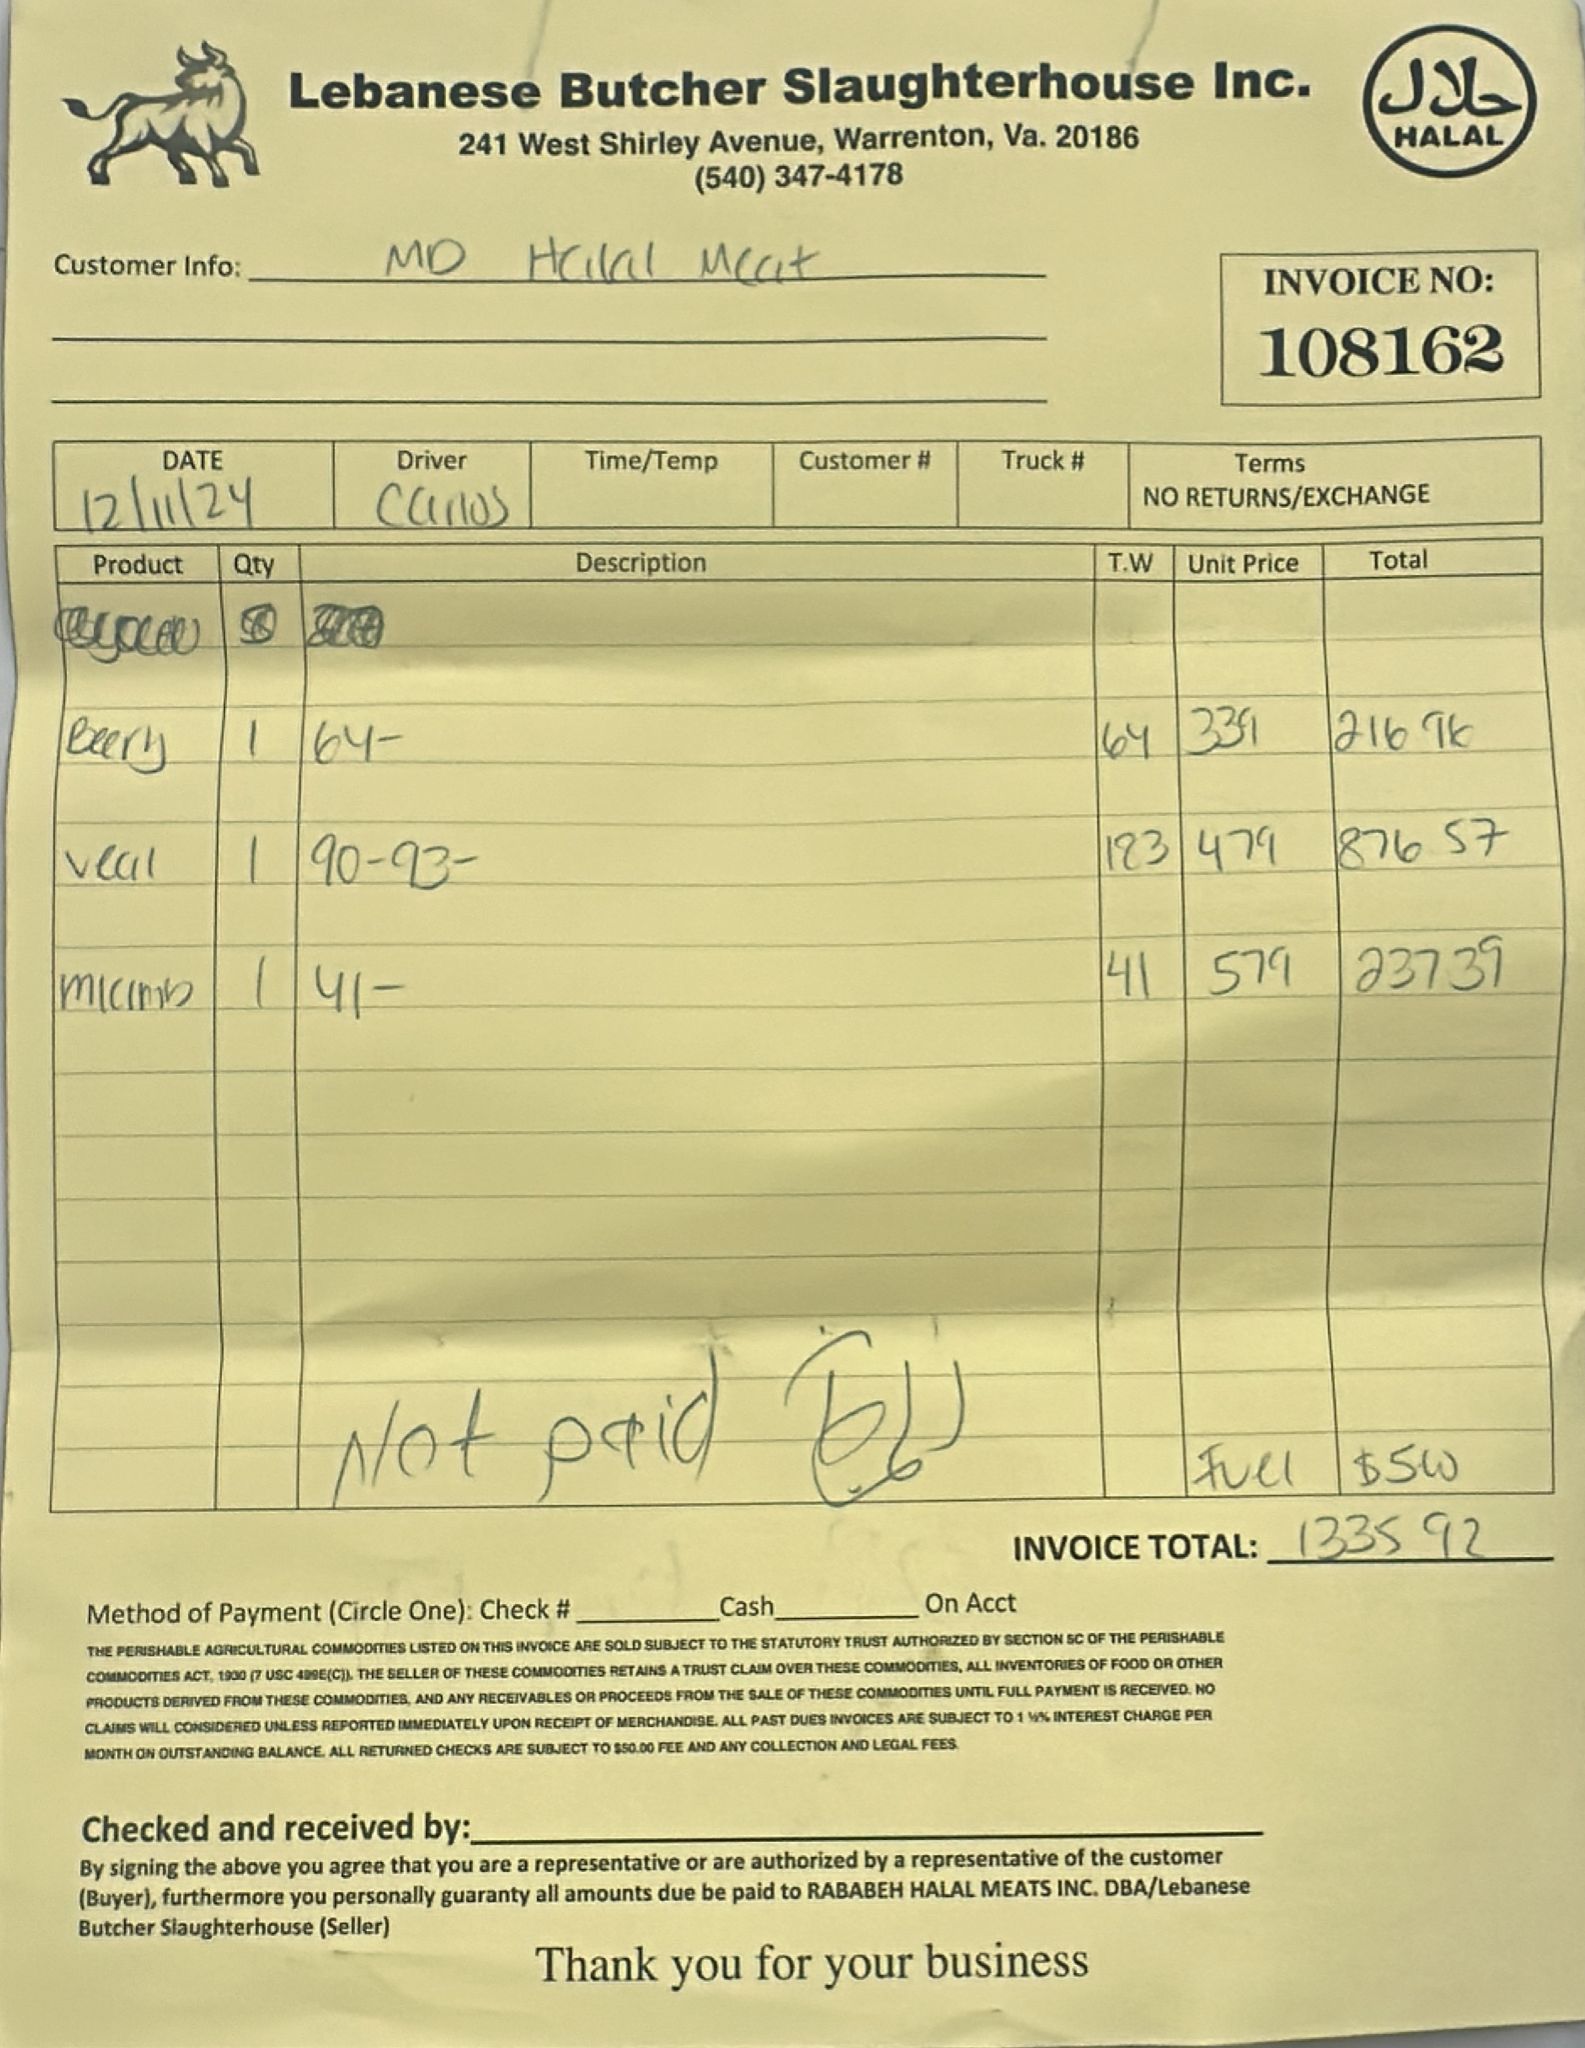 Lebanese Butcher Slaughterhouse Inc.
241 West Shirley Avenue, Warrenton, Va. 20186
(540) 347-4178
حلال
HALAL
Customer Info: MD Halal Meat
INVOICE NO:
108162
DATE Driver Time/Temp Customer # Truck # Terms
12/11/24 Carlos NO RETURNS/EXCHANGE
Product Qty Description T.W Unit Price Total
1 64- 64 339 216 96
Veal 1 90-93- 183 479 876 57
1 41- 41 579 237 39
Not paid
Fuel $500
INVOICE TOTAL: 1335 92
Method of Payment (Circle One): Check # Cash On Acct
THE PERISHABLE AGRICULTURAL COMMODITIES LISTED ON THIS INVOICE ARE SOLD SUBJECT TO THE STATUTORY TRUST AUTHORIZED BY SECTION 5C OF THE PERISHABLE
COMMODITIES ACT, 1930 (7 USC 499E(C)). THE SELLER OF THESE COMMODITIES RETAINS A TRUST CLAIM OVER THESE COMMODITIES, ALL INVENTORIES OF FOOD OR OTHER
PRODUCTS DERIVED FROM THESE COMMODITIES, AND ANY RECEIVABLES OR PROCEEDS FROM THE SALE OF THESE COMMODITIES UNTIL FULL PAYMENT IS RECEIVED. NO
CLAIMS WILL CONSIDERED UNLESS REPORTED IMMEDIATELY UPON RECEIPT OF MERCHANDISE. ALL PAST DUES INVOICES ARE SUBJECT TO 1 ½% INTEREST CHARGE PER
MONTH ON OUTSTANDING BALANCE. ALL RETURNED CHECKS ARE SUBJECT TO $50.00 FEE AND ANY COLLECTION AND LEGAL FEES.
Checked and received by:
By signing the above you agree that you are a representative or are authorized by a representative of the customer
(Buyer), furthermore you personally guaranty all amounts due be paid to RABABEH HALAL MEATS INC. DBA/Lebanese
Butcher Slaughterhouse (Seller)
Thank you for your business